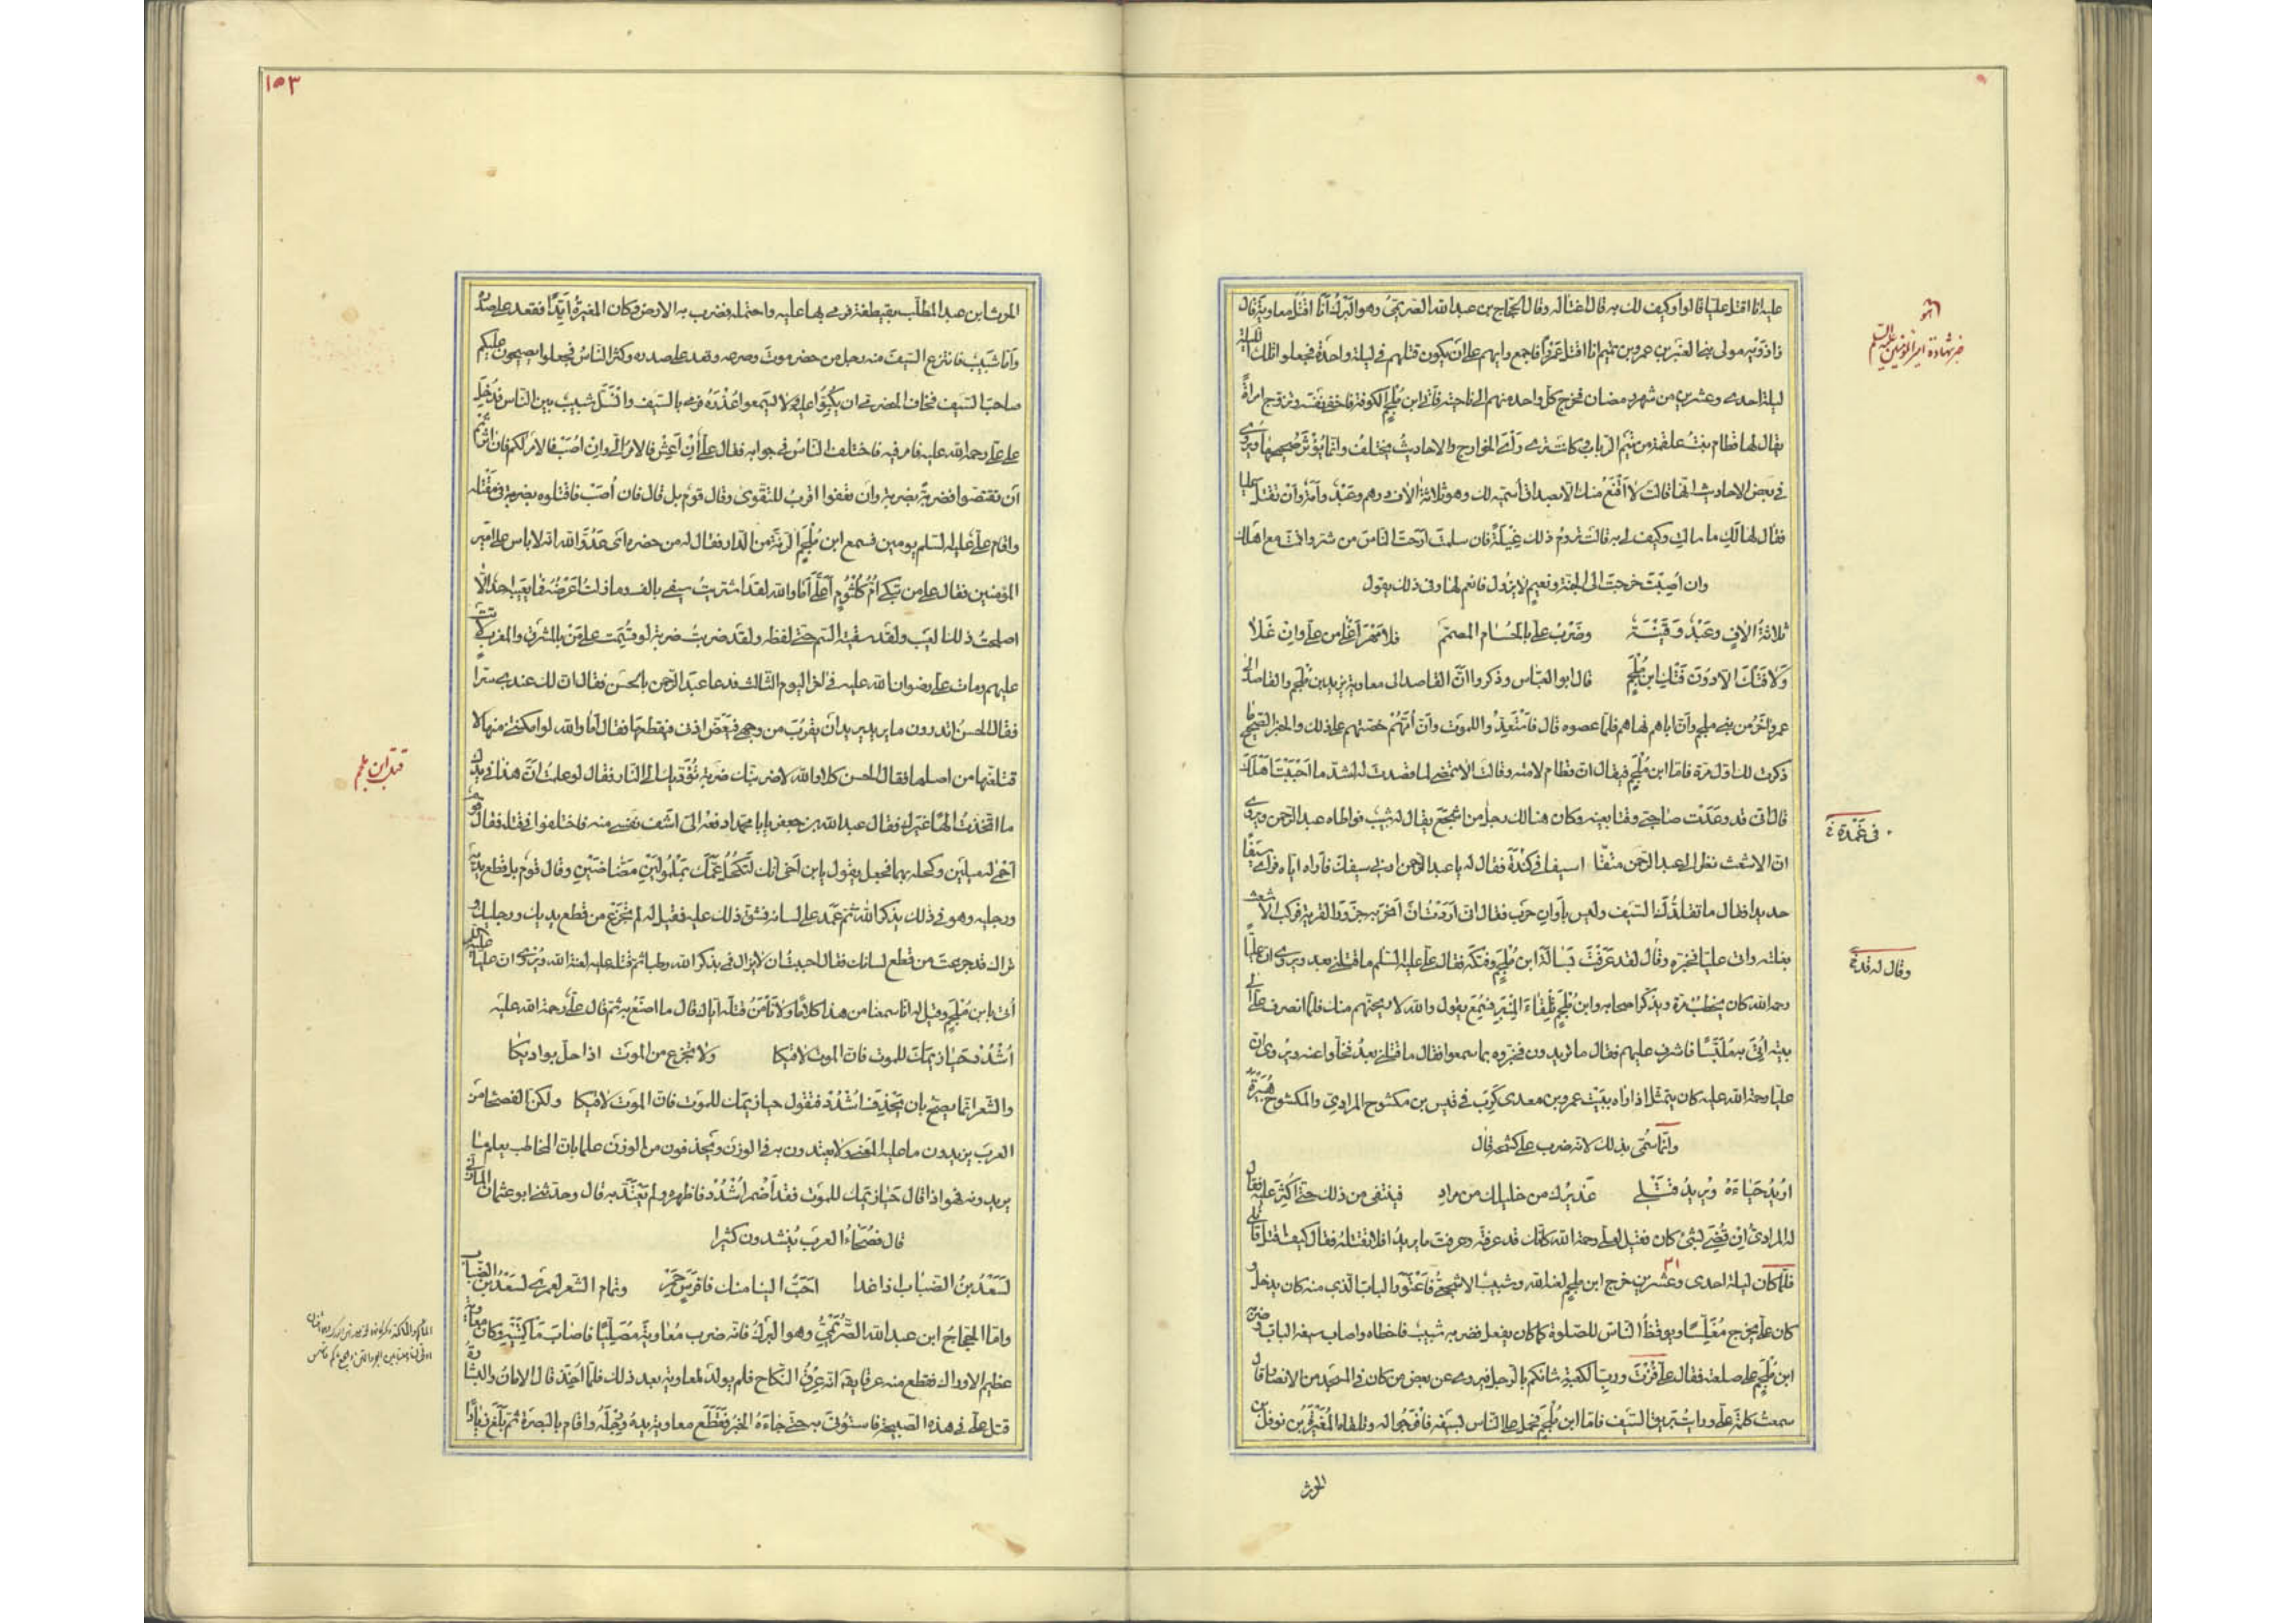 عليه انا اقتل عليا قالوا وكيف لك به قال اغتاله وقال الحجاج بن عبدالله الصريمى وهو البرك انا اقتل معاوية وقال
زاذويه مولى بنى العنبر بن عمرو بن تميم انا اقتل عمروا فاجمع رايهم على ان يكون قتلهم فى ليلة واحدة فجعلوا تلك الليلة
ليلة احدى وعشرين من شهر رمضان فخرج كل واحد منهم الى ناحيته فاتى ابن ملجم الكوفة فاخفى نفسه وتزوج امراة
يقال لها قطام بنت علقمة من تيم الرباب وكانت ترى رأى الخوارج والاحاديث تختلف وانما يؤثر صحيحها ويروى
فى بعض الاحاديث انها قالت لا اقنع منك الا بصداق اسميه لك وهو ثلاثة الاف درهم وعبد وامة وان تقتل عليا
فقال لها لك ما سالت وكيف لى به قالت تروم ذلك غيلة فان سلمت ارحت الناس من شر واقمت مع اهلك
وان اصبت خرجت الى الجنة ونعيم لا يزول فانعم لها وفى ذلك يقول
ثلاثة الاف وعبد وقينة وضرب على بالحسام المصمم فلا مهر اغلى من على وان غلا
ولا فتك الا دون فتك ابن ملجم قال ابو العباس وذكروا ان القاصد الى معاوية يزيد بن ملجم والقاصد الى
عمرو اخر من بنى ملجم وان اباهم نهاهم فلما عصوه قال فاستعدوا للموت وان امهم حضتهم على ذلك والخبر الصحيح ما
ذكرت لك اول مرة فاما ابن ملجم فيقال ان قطام لامته وقالت الا تمضى لما قصدت له لشد ما احببت اهلك
قال انى قد وعدت صاحبى وقتا بعينه وكان هنالك رجل من اشجع يقال له شبيب فواطاه عبدالرحمن ويروى
ان الاشعث نظر الى عبدالرحمن متقلدا سيفا فى كندة فقال له يا عبدالرحمن ارنى سيفك فاراه اياه فراى سيفا
حديدا فقال ما تقلدك السيف وليس باوان حرب فقال انى اردت ان انحر به جزور القرية فركب الاشعث
بغلته واتى عليا فخبره وقال لقد عرفت بسالة ابن ملجم وفتكه فقال على عليه السلم ما قتلنى بعد ويروى ان عليا
رحمه الله كان يخطب مرة ويذكر اصحابه وابن ملجم تلقاء المنبر فسمع يقول والله لاريحنهم منك فلما انصرف على الى
بيته اتى به ملببا فاشرف عليهم فقال ما تريدون فخبروه بما سمعوا فقال ما قتلنى بعد فخلوا عنه ويروى ان
عليا رحمة الله عليه كان يتمثل اذا راه ببيت عمرو بن معدى كرب فى قيس بن مكشوح المرادى والمكشوح هبيرة
وانما سمى بذلك لانه ضرب على كشحه قال
اريد حباءه ويريد قتلى عذيرك من خليلك من مراد فينتفى من ذلك حتى اكثر عليه فقال
له المرادى ان قضى لشئ كان فقيل لعلى رحمة الله كانك قد عرفته وعرفت ما يريد افلا تقتله فقال كيف اقتل قاتلى
فلما كان ليلة احدى وعشرين خرج ابن ملجم لعنه الله وشبيب الاشجعى فاعتورا الباب الذى منه كان يدخل و
كان على يخرج مغلسا ويوقظ الناس للصلوة كما كان يفعل فضربه شبيب فاخطاه واصاب سيفه الباب وضربه
ابن ملجم على صلعته فقال على فزت ورب الكعبة شانكم بالرجل فيروى عن بعض من كان فى المسجد من الانصار قال
سمعت كلمة على ورايت بريق السيف فاما ابن ملجم فحمل على الناس بسيفه فافرجوا له وتلقاه المغيرة بن نوفل بن
الحرث
خبر شهادة امير المؤمنين عليه السلم
فى غمده
وقال له قد
١٥٣
الحرث بن عبدالمطلب بقطيفة فرمى بها عليه واحتمله فضرب به الارض وكان المغيرة ايدا فقعد على صدره
واما شبيب فانتزع السيف منه رجل من حضرموت وصرعه وقعد على صدره وكثر الناس فجعلوا يصيحون عليكم
صاحب السيف فخاف الحضرمى ان يكبوا عليه ولا يسمعوا عذره فرمى بالسيف وانسل شبيب بين الناس فدخل
على على رحمة الله عليه فامر فيه فاختلف الناس فى جوابه فقال على ان اعش فالامر الى وان اصب فالامر لكم فان اثرتم
ان تقتصوا فضربة بضربة وان تعفوا اقرب للتقوى وقال قوم بل قال فان اصب فاقتلوه بضربة فى مقتله
واقام على عليه السلم يومين فسمع ابن ملجم الرنة من الدار فقال له من حضره اى عدو الله انه لا باس على امير
المؤمنين فقال على من تبكى ام كلثوم اعلى اما والله لقد اشتريت سيفى بالف وما زلت اعرضه فما يعيبه احد الا
اصلحت ذلك العيب ولقد سقيته السم حتى لفظه ولقد ضربت ضربة لو قسمت على من بالمشرق والمغرب لاتت
عليهم ومات على رضوان الله عليه فى اخر اليوم الثالث فدعا عبدالرحمن بالحسن فقال ان لك عندى سرا
فقال الحسن اتدرون ما يريد يريد ان يقرب من وجهى فيعض اذنى فيقطعها فقال اما والله لو امكنتنى منها لا
قتلعتها من اصلها فقال الحسن كلا والله لاضربنك ضربة تؤديك الى النار فقال لو علمت ان هذا فى يدك
ما اتخذت الها غيرك فقال عبدالله بن جعفر يا ابا محمد ادفعه الى اشف نفسى منه فاختلفوا فى قتله فقال قوم
احمى له ميلين وكحله بهما فجعل يقول يا بن اخى انك لتكحل عمك بملمولين مضاضين وقال قوم بل قطع يديه
ورجليه وهو فى ذلك يذكر الله ثم عمد على لسانه فشق ذلك عليه فقيل له لم تجزع من قطع يديك ورجليك و
نراك قد جزعت من قطع لسانك فقال احببت ان لا يزال فى بذكر الله رطبا ثم قتله عليه لعنة الله ويروى ان عليا
اتى بابن ملجم وقيل له انا سمعنا من هذا كلاما ولا نامن قتله اياك قال ما اصنع به ثم قال على رحمة الله عليه
اشدد حيازيمك للموت فان الموت لاقيكا ولا تجزع من الموت اذا حل بواديكا
والشعر انما يصح بان يحذف اشدد فتقول حيازيمك للموت فان الموت لاقيكا ولكن الفصحاء من
العرب يزيدون ما عليه المعنى ولا يعتدون به فى الوزن ويحذفون من الوزن علما بان المخاطب يعلم ما
يريدونه فهو اذا قال حيازيمك للموت فقد اضمر اشدد فاظهره ولم يعتد به قال وحدثنى ابو عثمان المازنى
قال فصحاء العرب ينشدون كثيرا
لسعد بن الضباب اذا غدا احب الينا منك فا فرس حمر وتمام الشعر لعمرى لسعد بن الضباب
واما الحجاج ابن عبدالله الصريمى وهو البرك فانه ضرب معاوية مصليا فاصاب ماكمته وكان معاوية
عظيم الاوراك فقطع منه عرقا يقال انه عرق النكاح فلم يولد لمعاوية بعد ذلك فلما اخذ قال الامان والبشارة
قتل على فى هذه الصبيحة فاستوفى به حتى جاءه الخبر فقطع معاوية يده ورجله واقام بالبصرة ثم بلغ زيادا
قتل ابن ملجم